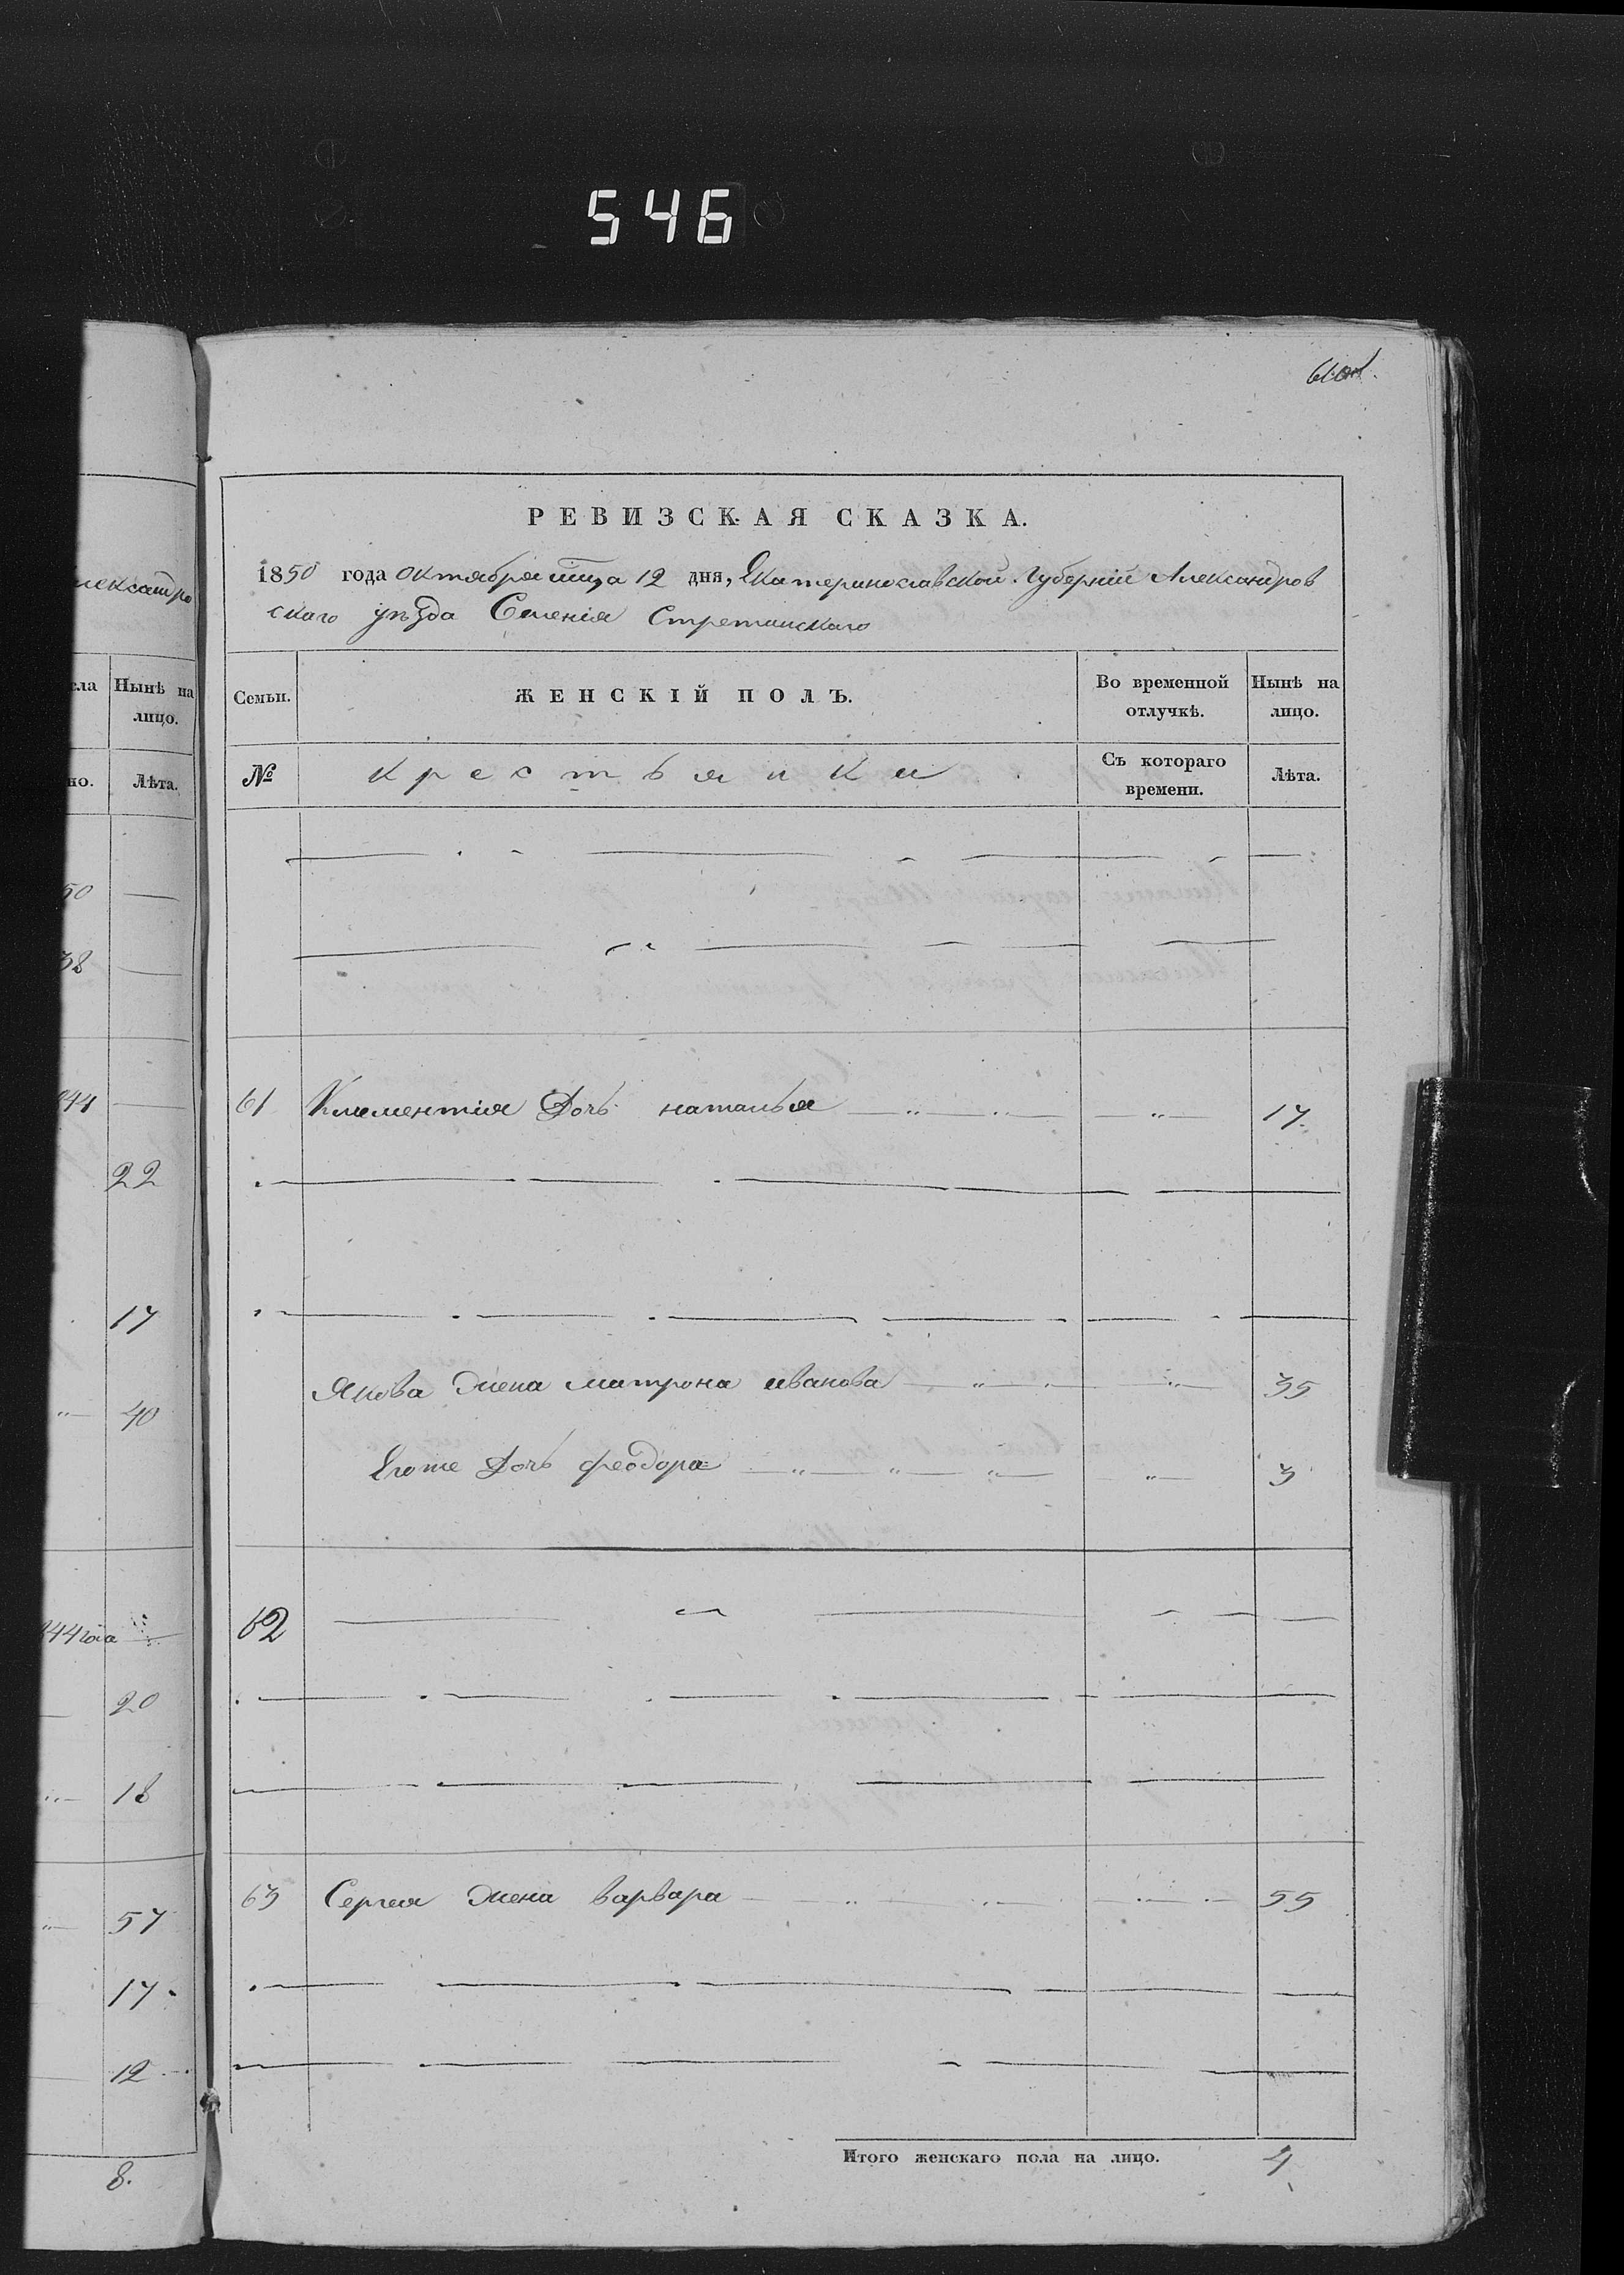 546
РЕВИЗСКАЯ СКАЗКА.
1850 года октября мца 12 дня, Екатеринославской Губерніи Александров
скаго уѣзда Селенія Стретинскаго
лександро
сла Нынѣ на лицо.
но. Лѣта.
Семьи. ЖЕНСКІЙ ПОЛЪ. Во временной отлучкѣ. Нынѣ на лицо.
№ крестьянки Съ котораго времени. Лѣта.
50
38
44
22
17
40
844 года
20
18
57
17
12
8.
61 Климентія Дочь наталья 17
Якова жена матрона иванова 35
Егоже Дочь феодора 3
62
63 Сергея жена варвара 55
Итого женскаго пола на лицо. 4